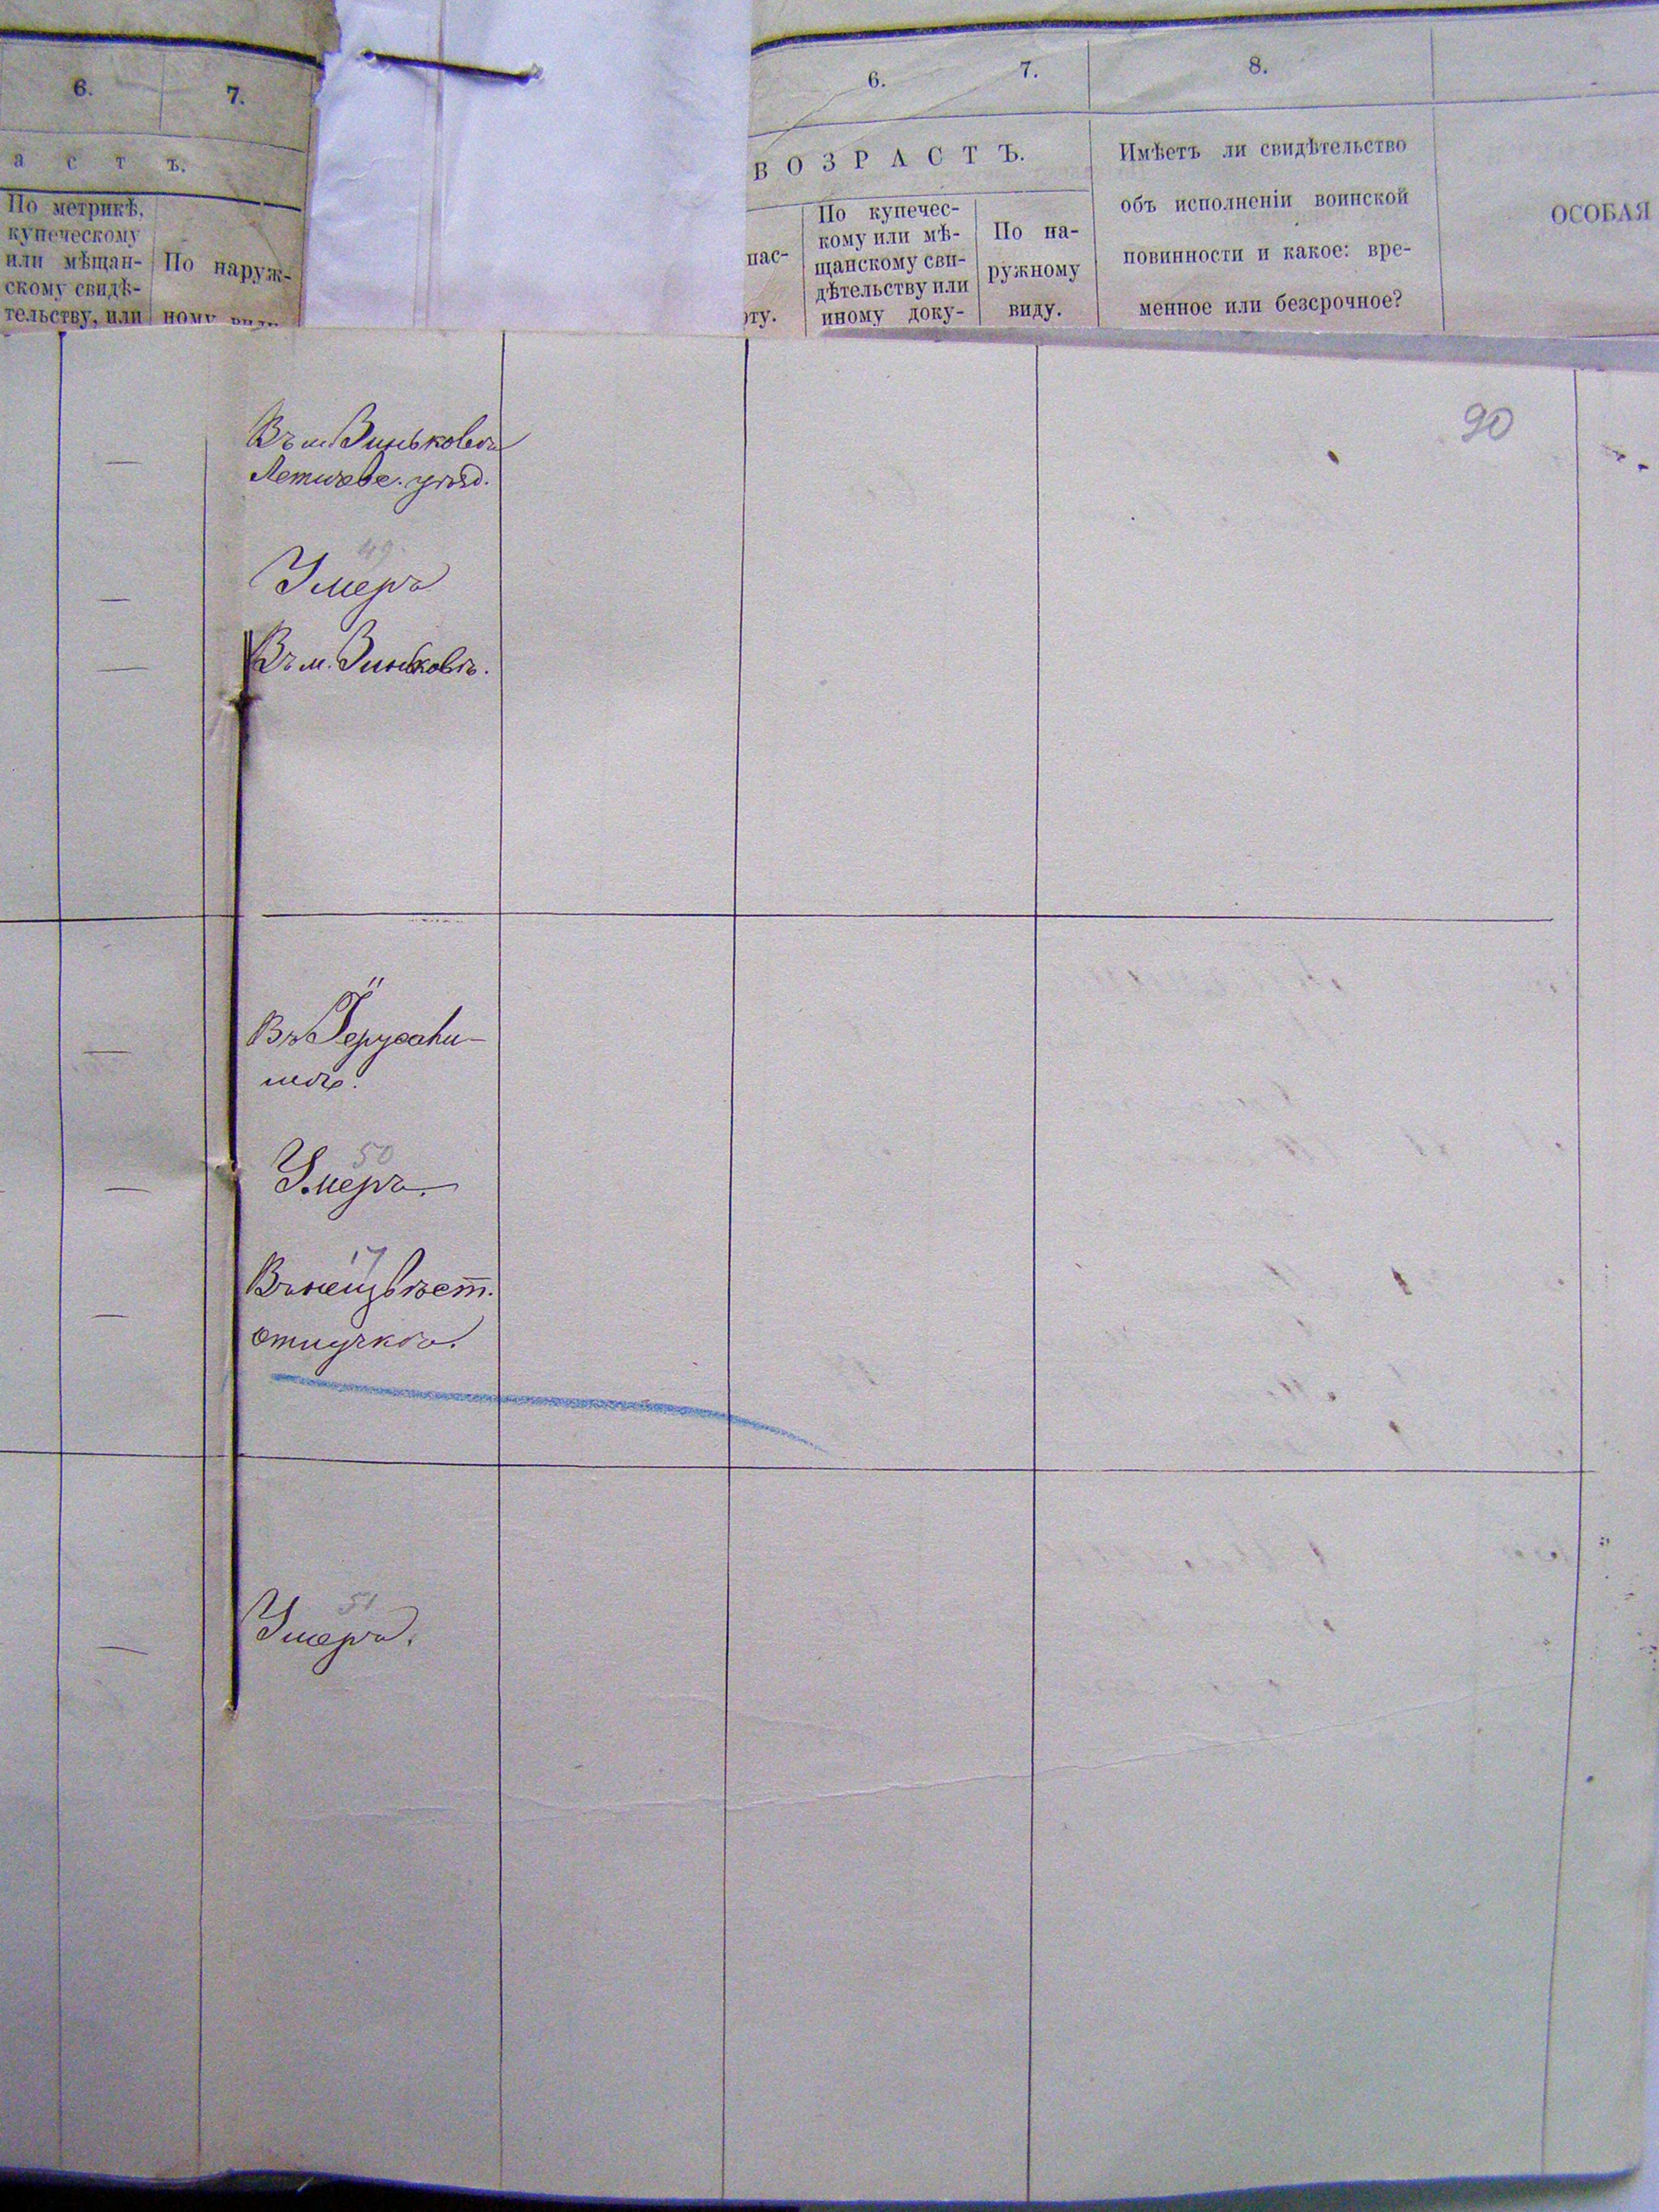 6.
7.
а с т ъ.
По метрикѣ,
купеческому
или мѣщан-
скому свидѣ-
тельству, или
По наруж-
ному виду
6.
7.
8.
ВОЗРАСТЪ.
пас-
рту.
По купечес-
кому или мѣ-
щанскому сви-
дѣтельству или
иному доку-
По на-
ружному
виду.
Имѣетъ ли свидѣтельство
объ исполненіи воинской
повинности и какое: вре-
менное или безсрочное?
ОСОБАЯ
90
Въ м. Зиньковѣ
Летичев. уѣзд.
49
Умеръ
Въ м. Зиньковѣ.
Въ Іерусали-
мѣ.
50
Умеръ.
17
Въ неизвѣст.
отлучкѣ.
51
Умеръ.